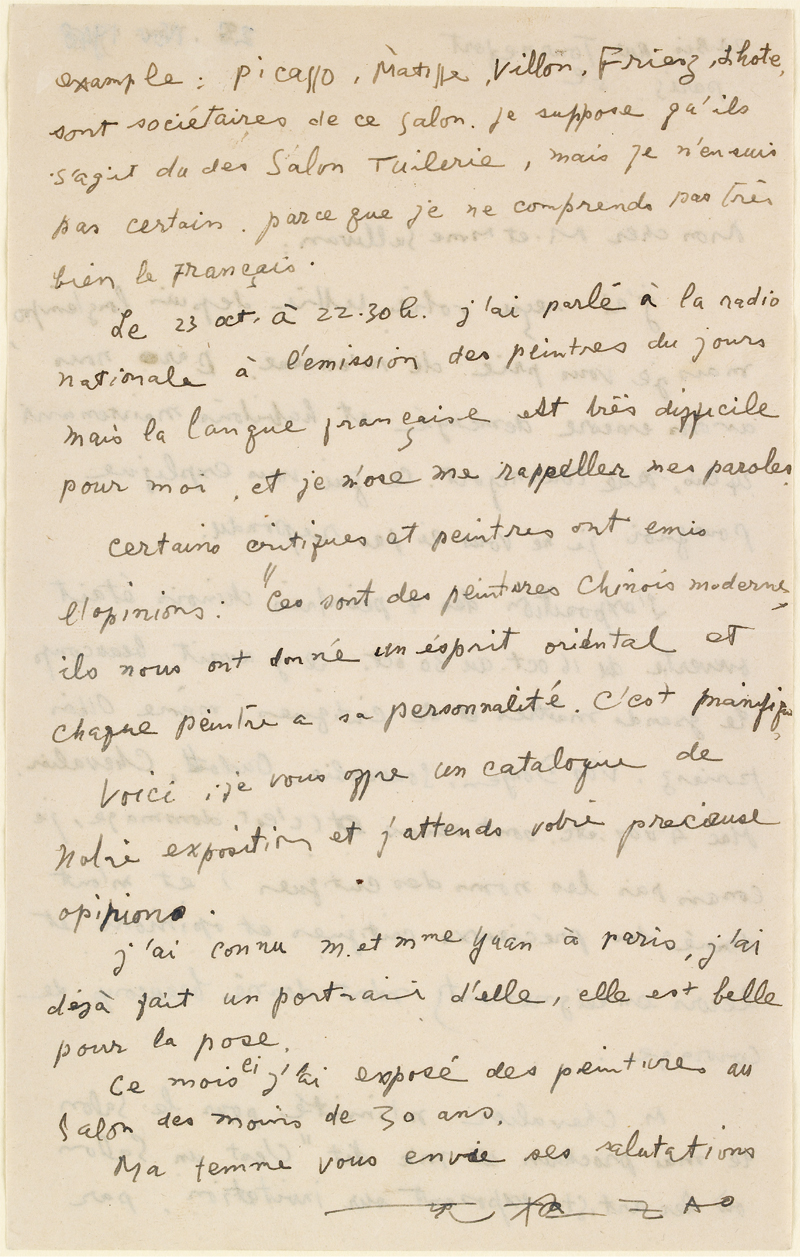 example : Picasso, Matisse, Villon, Friesz, Lhote,
sont sociétaires de ce Salon. je suppose qu'ils
s'agit du des Salon Tuilerie, mais je n'en suis
pas certain. parce que je ne comprends pas très
bien le Français.
Le 23 oct. à 22.30h. j'ai parlé à la radio
nationale à l'émission des peintres du jours
mais la langue française est très difficile
pour moi, et je n'ose me rappeller mes paroles.
certains critiques et peintres ont emis
l'opinions : "Ces sont des peintures Chinois modernes,
ils nous ont donné un ésprit oriental et
chaque peintre a sa personnalité. C'est
Voici, je vous offre un catalogue de
Notre exposition et j'attends votre precieuse
opinions.
j'ai connu m. et mme Yuan à paris, j'ai
déjà fait un portrait d'elle, elle est belle
pour la pose.
Ce mois ci j'ai exposé des peintures au
Salon des moins de 30 ans.
Ma femme vous envie ses salutations
ZAO